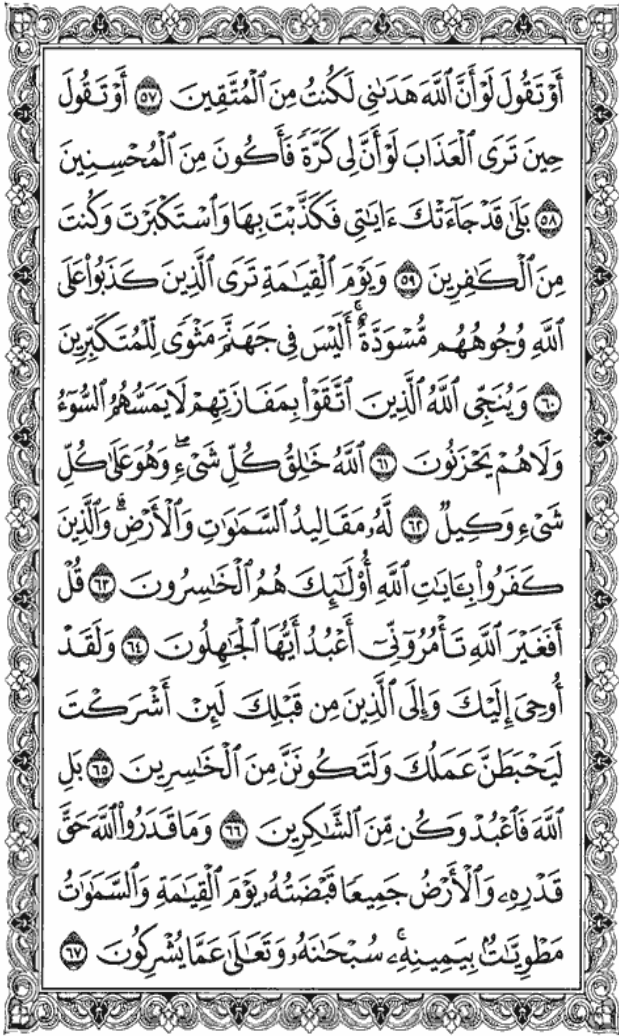 أَوْ تَقُولَ لَوْ أَنَّ ٱللَّهَ هَدَىٰنِى لَكُنتُ مِنَ ٱلْمُتَّقِينَ ٥٧ أَوْ تَقُولَ
حِينَ تَرَى ٱلْعَذَابَ لَوْ أَنَّ لِى كَرَّةً فَأَكُونَ مِنَ ٱلْمُحْسِنِينَ
٥٨ بَلَىٰ قَدْ جَآءَتْكَ ءَايَٰتِى فَكَذَّبْتَ بِهَا وَٱسْتَكْبَرْتَ وَكُنتَ
مِنَ ٱلْكَٰفِرِينَ ٥٩ وَيَوْمَ ٱلْقِيَٰمَةِ تَرَى ٱلَّذِينَ كَذَبُوا۟ عَلَى
ٱللَّهِ وُجُوهُهُم مُّسْوَدَّةٌ ۚ أَلَيْسَ فِى جَهَنَّمَ مَثْوًى لِّلْمُتَكَبِّرِينَ
٦٠ وَيُنَجِّى ٱللَّهُ ٱلَّذِينَ ٱتَّقَوْا۟ بِمَفَازَتِهِمْ لَا يَمَسُّهُمُ ٱلسُّوٓءُ
وَلَا هُمْ يَحْزَنُونَ ٦١ ٱللَّهُ خَٰلِقُ كُلِّ شَىْءٍ ۖ وَهُوَ عَلَىٰ كُلِّ
شَىْءٍ وَكِيلٌ ٦٢ لَّهُۥ مَقَالِيدُ ٱلسَّمَٰوَٰتِ وَٱلْأَرْضِ ۗ وَٱلَّذِينَ
كَفَرُوا۟ بِـَٔايَٰتِ ٱللَّهِ أُو۟لَٰٓئِكَ هُمُ ٱلْخَٰسِرُونَ ٦٣ قُلْ
أَفَغَيْرَ ٱللَّهِ تَأْمُرُوٓنِّىٓ أَعْبُدُ أَيُّهَا ٱلْجَٰهِلُونَ ٦٤ وَلَقَدْ
أُوحِىَ إِلَيْكَ وَإِلَى ٱلَّذِينَ مِن قَبْلِكَ لَئِنْ أَشْرَكْتَ
لَيَحْبَطَنَّ عَمَلُكَ وَلَتَكُونَنَّ مِنَ ٱلْخَٰسِرِينَ ٦٥ بَلِ
ٱللَّهَ فَٱعْبُدْ وَكُن مِّنَ ٱلشَّٰكِرِينَ ٦٦ وَمَا قَدَرُوا۟ ٱللَّهَ حَقَّ
قَدْرِهِۦ وَٱلْأَرْضُ جَمِيعًا قَبْضَتُهُۥ يَوْمَ ٱلْقِيَٰمَةِ وَٱلسَّمَٰوَٰتُ
مَطْوِيَّٰتٌۢ بِيَمِينِهِۦ ۚ سُبْحَٰنَهُۥ وَتَعَٰلَىٰ عَمَّا يُشْرِكُونَ ٦٧